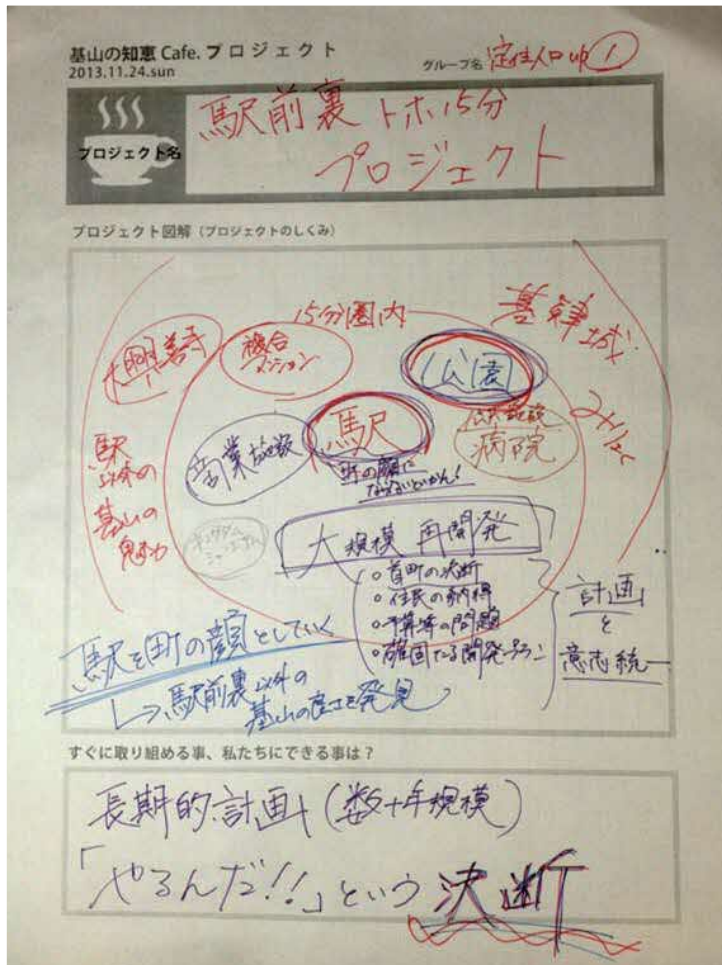 基山の知恵 Cafe. プロジェクト
2013.11.24.sun
グループ名 定住人口up ①
プロジェクト名
駅前裏 トホ15分
プロジェクト
プロジェクト図解（プロジェクトのしくみ）
15分圏内
基肄城
大興善寺
複合
マンション
公園
駅
公共施設
病院
商業施設
町の顔に
ならないといかん!
駅
以外の
基山の
魅力
大規模 再開発
○首町の決断
○住民の納得
○予算等の問題
○確固たる開発プラン
計画
と
意志統一
駅を町の顔としていく
↳駅前裏以外の
基山の良さを発見
すぐに取り組める事、私たちにできる事は？
長期的計画(数十年規模)
「やるんだ!!」という 決断